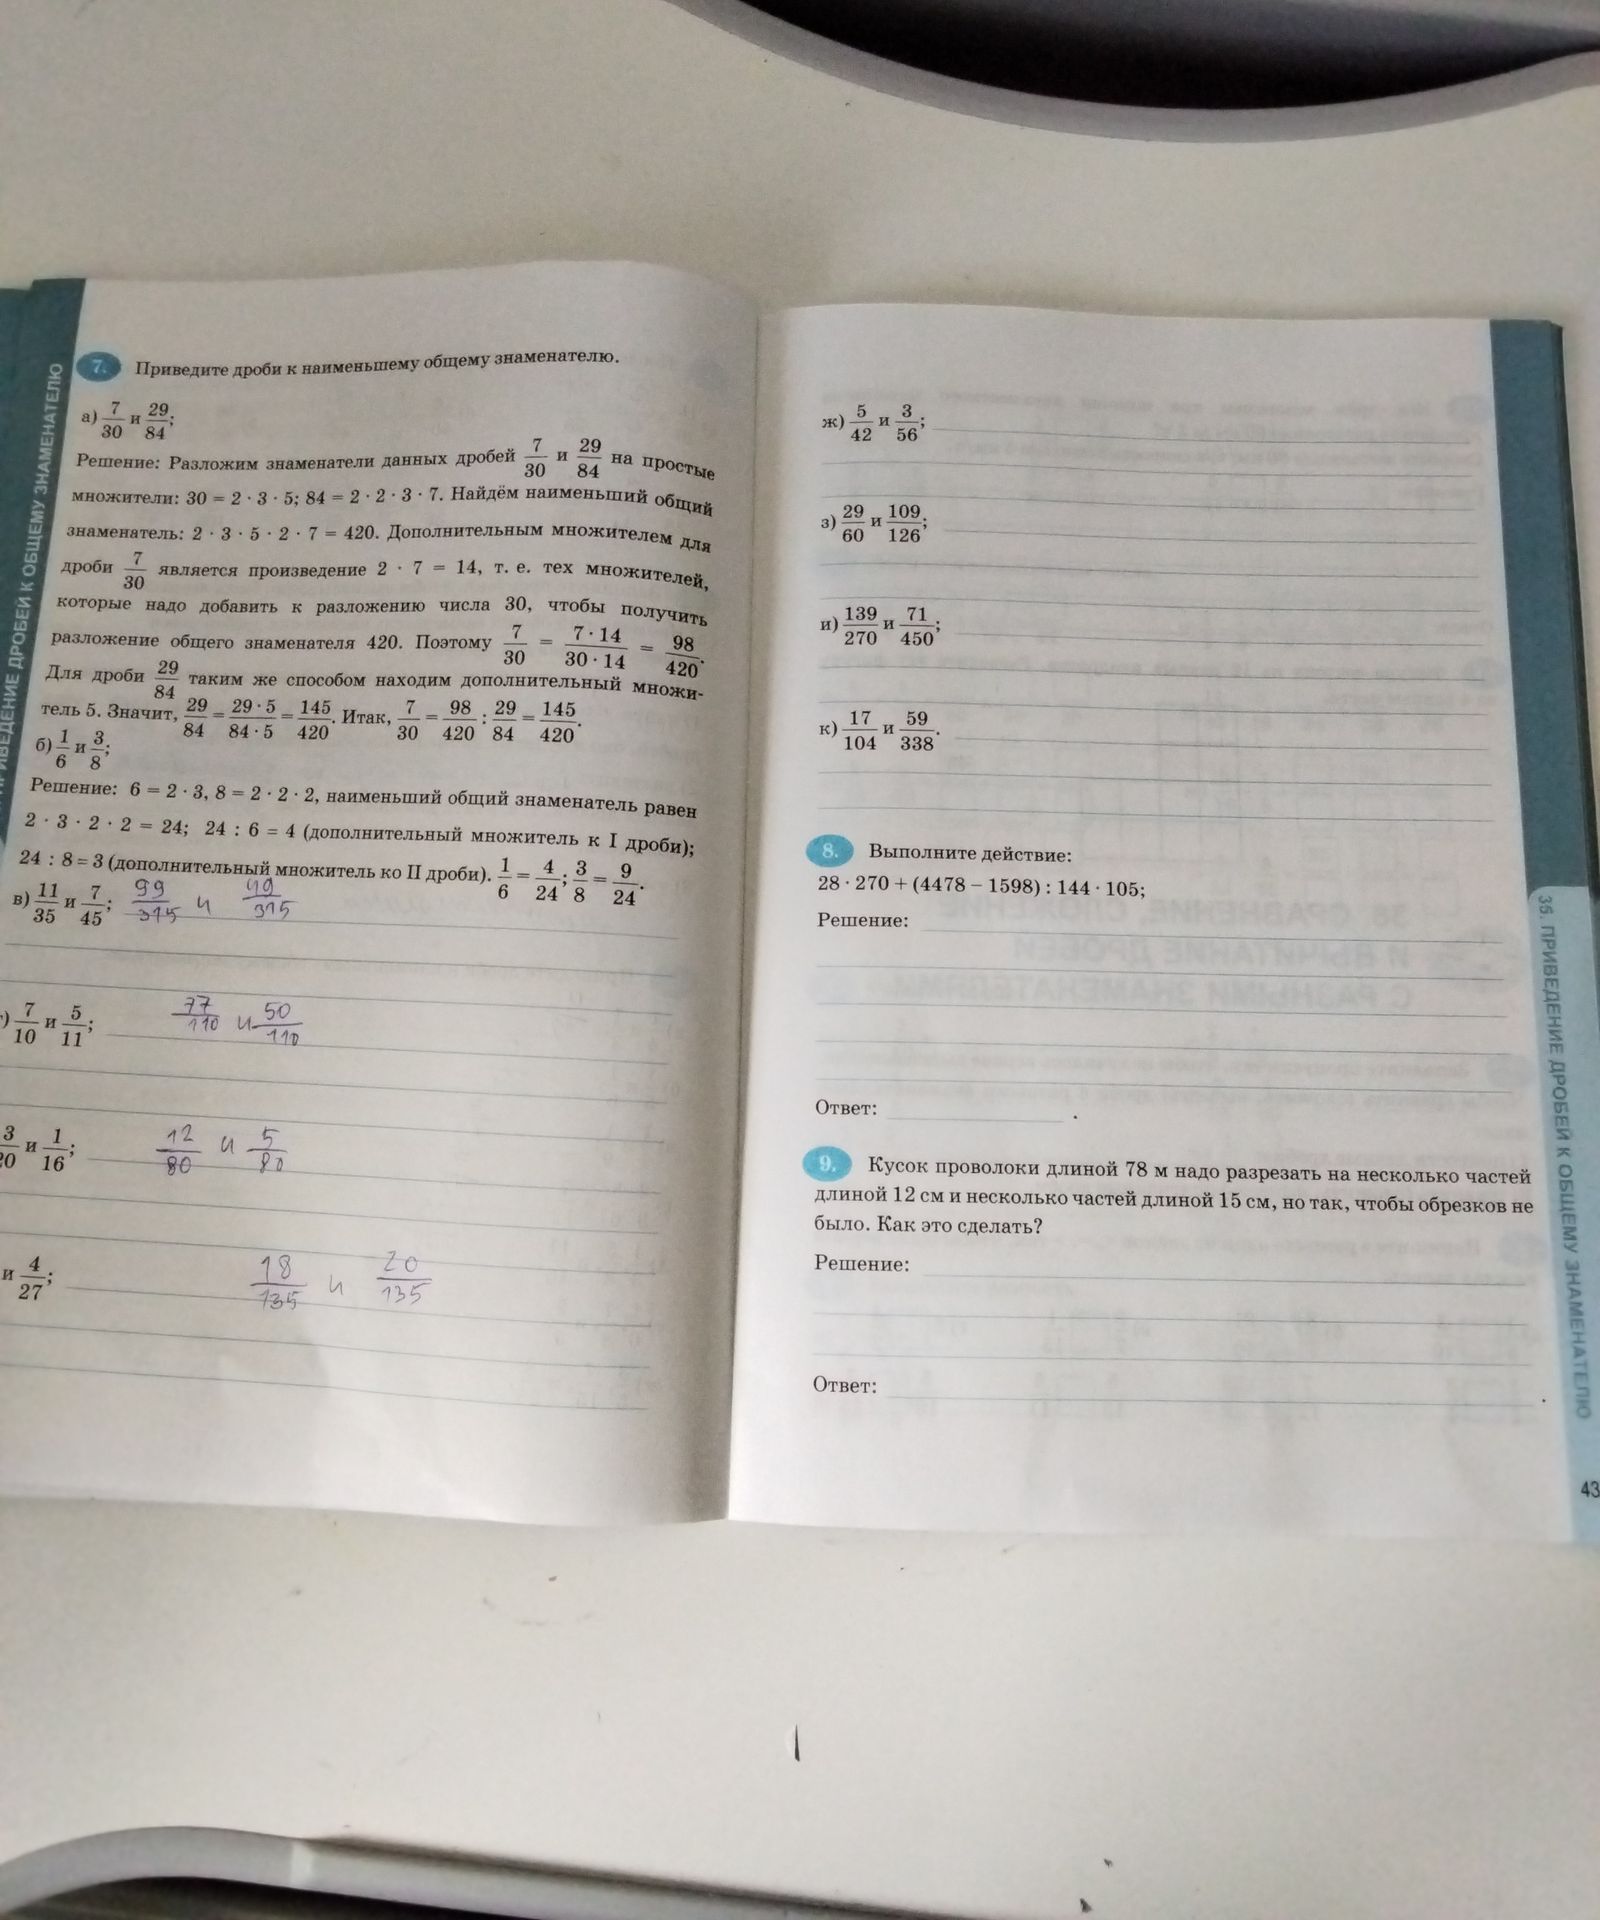 7. Приведите дроби к наименьшему общему знаменателю.
а) 7/30 и 29/84;
Решение: Разложим знаменатели данных дробей 7/30 и 29/84 на простые
множители: 30 = 2 · 3 · 5; 84 = 2 · 2 · 3 · 7. Найдём наименьший общий
знаменатель: 2 · 3 · 5 · 2 · 7 = 420. Дополнительным множителем для
дроби 7/30 является произведение 2 · 7 = 14, т. е. тех множителей,
которые надо добавить к разложению числа 30, чтобы получить
разложение общего знаменателя 420. Поэтому 7/30 = 7 · 14/30 · 14 = 98/420.
Для дроби 29/84 таким же способом находим дополнительный множи-
тель 5. Значит, 29/84 = 29 · 5/84 · 5 = 145/420. Итак, 7/30 = 98/420 : 29/84 = 145/420.
б) 1/6 и 3/8;
Решение: 6 = 2 · 3, 8 = 2 · 2 · 2, наименьший общий знаменатель равен
2 · 3 · 2 · 2 = 24; 24 : 6 = 4 (дополнительный множитель к I дроби);
24 : 8 = 3 (дополнительный множитель ко II дроби). 1/6 = 4/24; 3/8 = 9/24.
в) 11/35 и 7/45; 99/315 и 49/315
) 7/10 и 5/11; 77/110 и 50/110
3/20 и 1/16; 12/80 и 5/80
и 4/27; 18/135 и 20/135
ПРИВЕДЕНИЕ ДРОБЕЙ К ОБЩЕМУ ЗНАМЕНАТЕЛЮ
ж) 5/42 и 3/56;
з) 29/60 и 109/126;
и) 139/270 и 71/450;
к) 17/104 и 59/338.
8. Выполните действие:
28 · 270 + (4478 – 1598) : 144 · 105;
Решение:
Ответ: .
9. Кусок проволоки длиной 78 м надо разрезать на несколько частей
длиной 12 см и несколько частей длиной 15 см, но так, чтобы обрезков не
было. Как это сделать?
Решение:
Ответ: .
35. ПРИВЕДЕНИЕ ДРОБЕЙ К ОБЩЕМУ ЗНАМЕНАТЕЛЮ
43